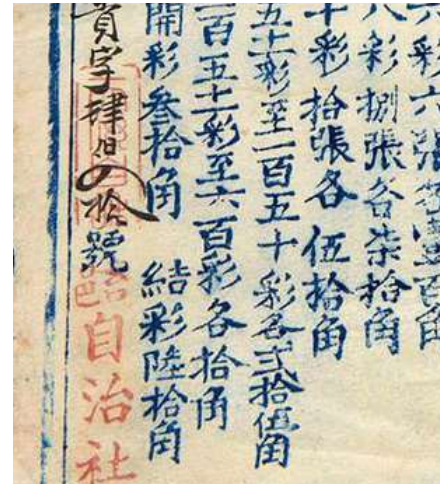 六彩六張各壹百角
八彩捌張各柒拾角
十彩拾張各伍拾角
五十一彩至一百五十彩各弍拾伍角
一百五十一彩至六百彩各拾角
開彩叁拾角 結彩陸拾角
字肆拾號
自治社